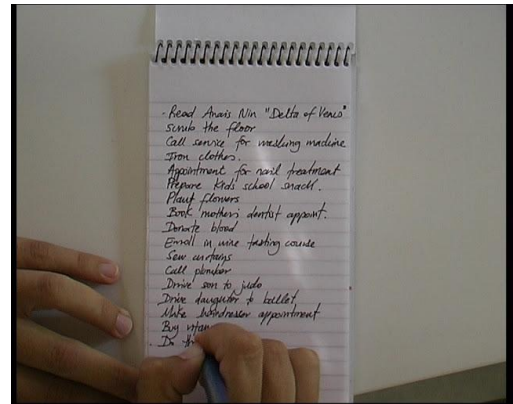 - Read Anais Nin "Delta of Venus"
Scrub the floor
Call service for washing machine
Iron clothes.
Appointment for nail treatment
Prepare kids school snack.
Plant flowers
Book mothers dentist appoint.
Donate blood
Enroll in wine tasting course
Sew curtains
Call plumber
Drive son to judo
Drive daughter to ballet
Make hairdresser appointment
Buy
Do